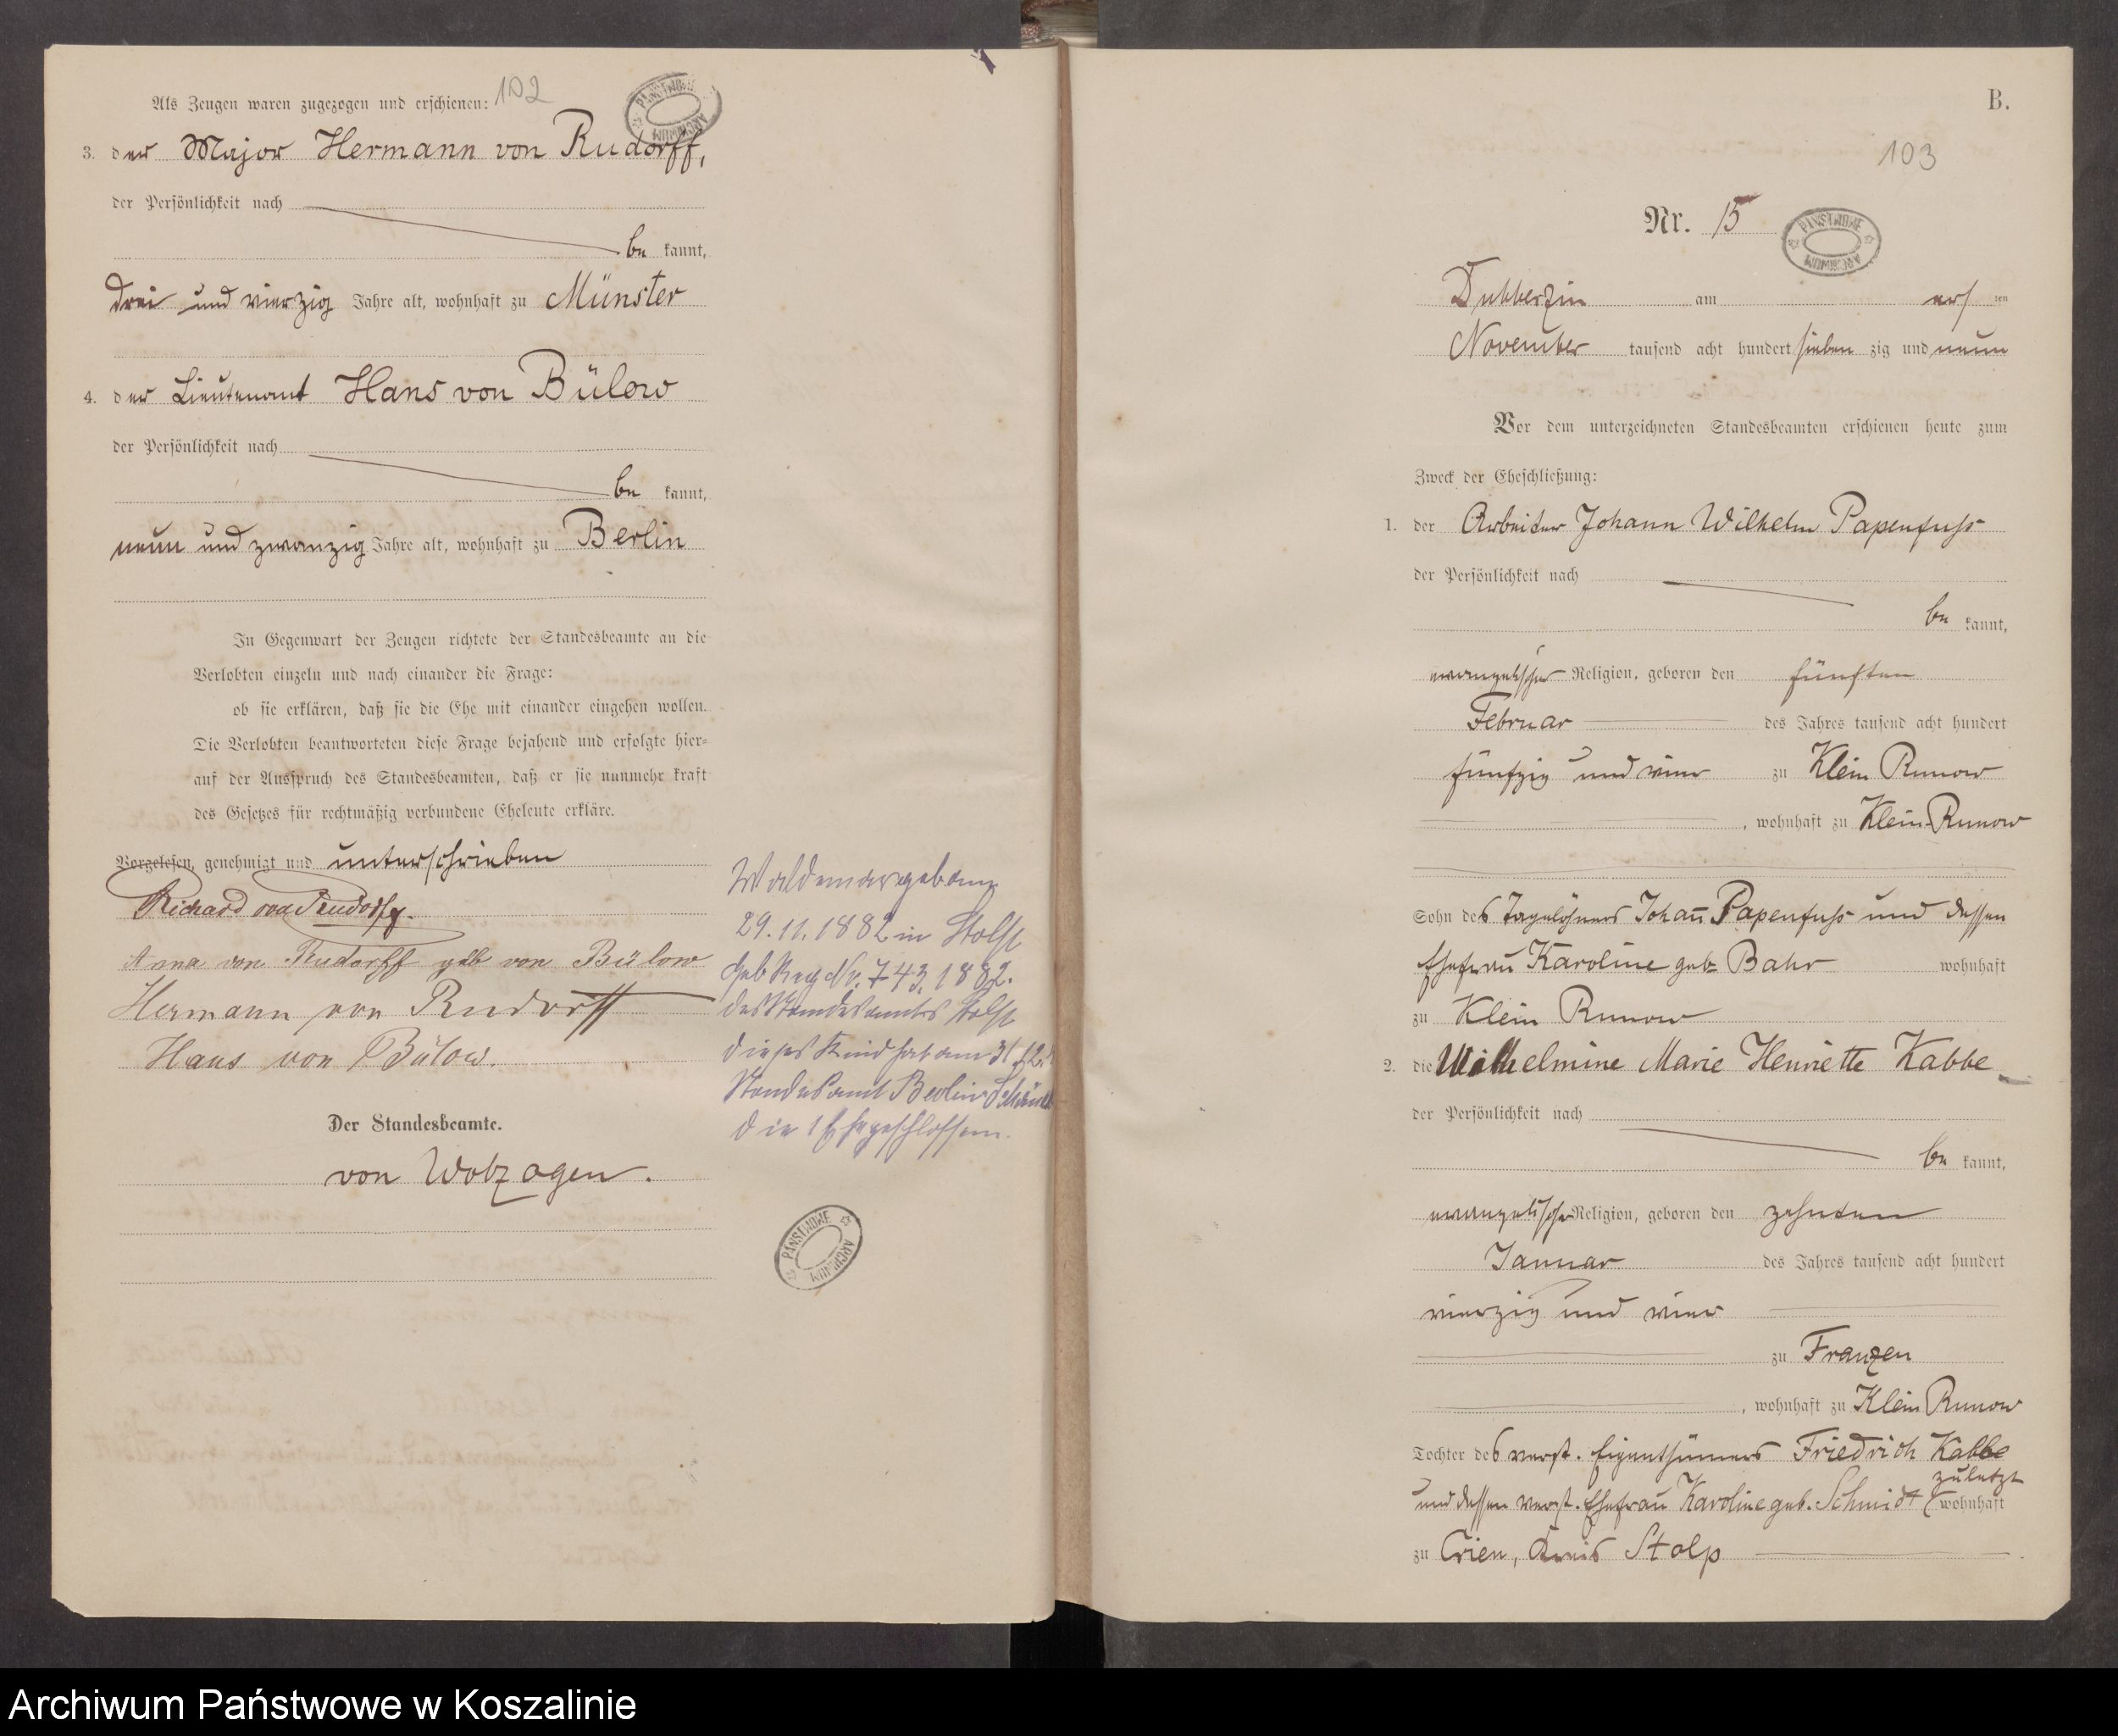 102
Als Zeugen waren zugezogen und erschienen:
PAŃSTWOWE ARCHIWUM
3. der Major Hermann von Rudorff,
der Persönlichkeit nach
be kannt,
drei und vierzig Jahre alt, wohnhaft zu Münster
4. der Lieutenant Hans von Bülow
der Persönlichkeit nach
be kannt,
neun und zwanzig Jahre alt, wohnhaft zu Berlin
In Gegenwart der Zeugen richtete der Standesbeamte an die
Verlobten einzeln und nach einander die Frage:
ob sie erklären, daß sie die Ehe mit einander eingehen wollen.
Die Verlobten beantworteten diese Frage bejahend und erfolgte hier-
auf der Ausspruch des Standesbeamten, daß er sie nunmehr kraft
des Gesetzes für rechtmäßig verbundene Eheleute erkläre.
Vorgelesen, genehmigt und unterschrieben
Richard von Rudorff.
Anna von Rudorff geb von Bülow
Hermann von Rudorff
Hans von Bülow.
Der Standesbeamte.
von Wolzogen.
Waldemar geboren
29.11.1882 in Stolp
Geb Reg Nr. 743, 1882.
des Standesamts Stolp
dieses Kind hat am 31.12.
Standesamt Berlin
die 1 Ehe geschlossen.
PAŃSTWOWE ARCHIWUM
B.
103
Nr. 15
PAŃSTWOWE ARCHIWUM
Dubberzin am ers ten
November tausend acht hundert sieben zig und neun
Vor dem unterzeichneten Standesbeamten erschienen heute zum
Zweck der Eheschließung:
1. der Arbeiter Johann Wilhelm Papenfuss
der Persönlichkeit nach
be kannt,
evangelischer Religion, geboren den fünften
Februar des Jahres tausend acht hundert
fünfzig und vier zu Klein Runow
, wohnhaft zu Klein Runow
Sohn des Tagelöhners Johañ Papenfuss und dessen
Ehefrau Karoline geb Bahr wohnhaft
zu Klein Runow
2. die Wilhelmine Marie Henriette Kabbe
der Persönlichkeit nach
be kannt,
evangelischer Religion, geboren den zehnten
Januar des Jahres tausend acht hundert
vierzig und vier
zu Franzen
, wohnhaft zu Klein Runow
Tochter des verst. Eigenthümers Friedrich Kabbe
und dessen verst. Ehefrau Karoline geb. Schmidt zuletzt wohnhaft
zu Crien, Kreis Stolp
Archiwum Państwowe w Koszalinie